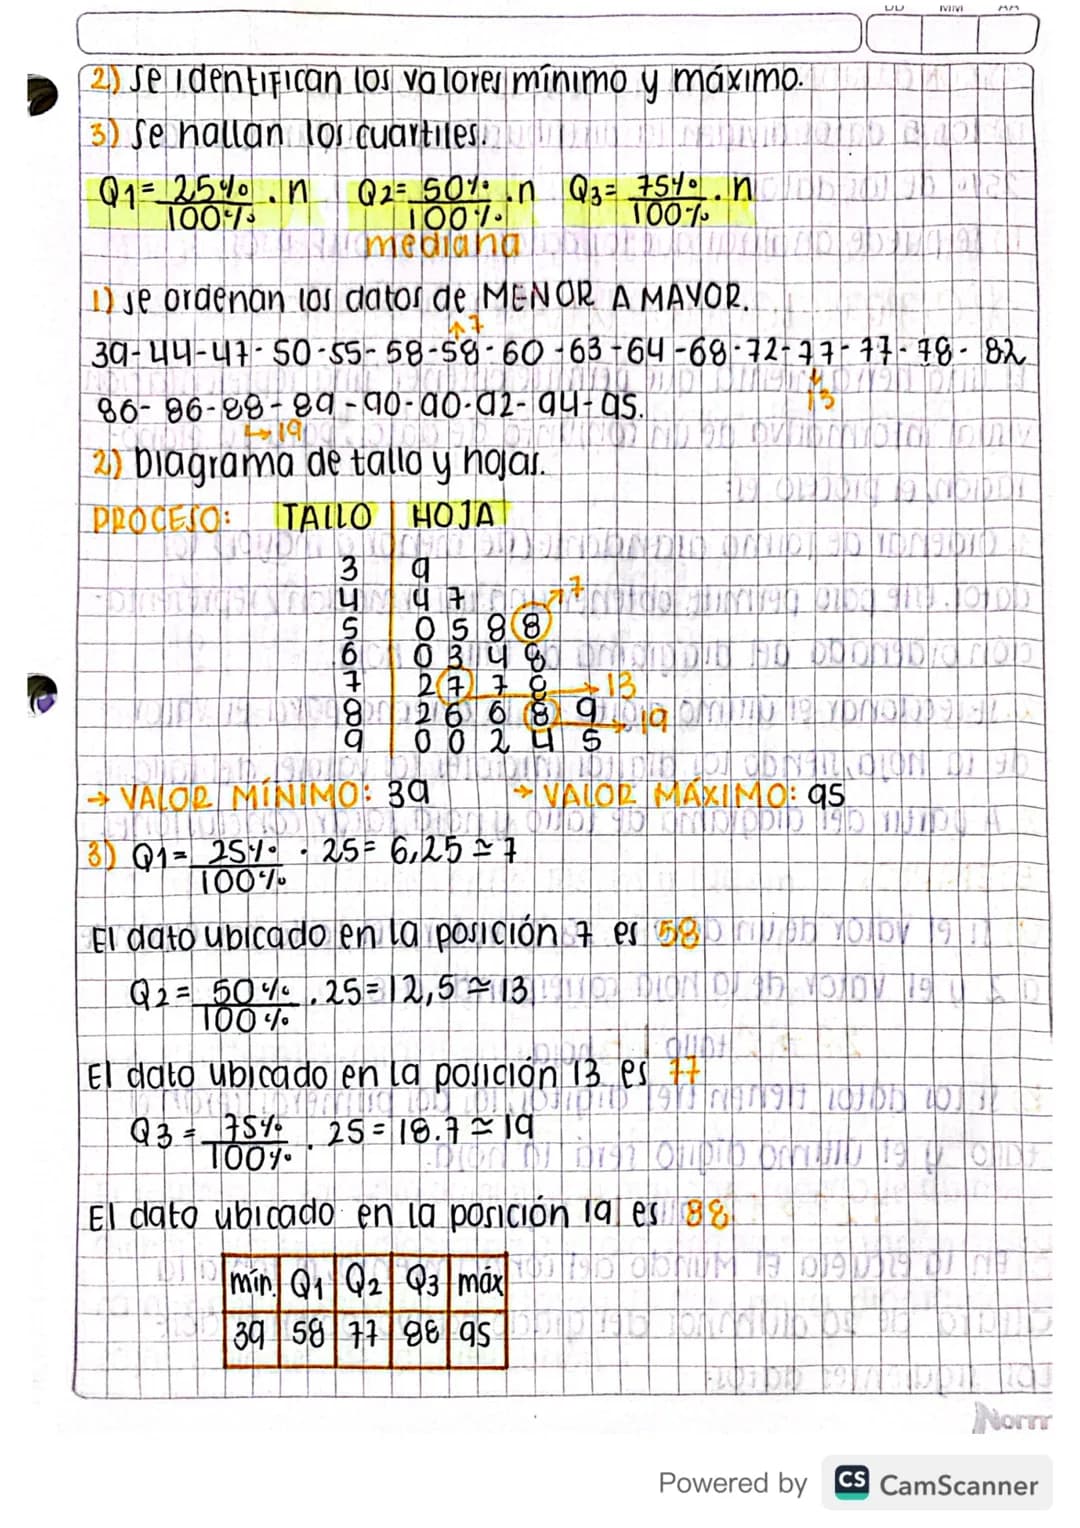 DD MM AA
2) Se identifican los valores mínimo y máximo.
3) Se hallan los cuartiles.
Q1= 25%/100% . n Q2= 50%/100% . n Q3= 75%/100% . n
mediana
1) se ordenan los datos de MENOR A MAYOR.
7
39-44-47-50-55-58-58-60-63-64-68-72-77-77-78-82
13
86-86-88-89-90-90-92-94-95.
19
2) Diagrama de tallo y hojas.
PROCESO: TALLO HOJA
3 9
4 4 7
5 0 5 8 8 → 7
6 0 3 4 8
7 2 7 7 8 → 13
8 2 6 6 8 9 → 19
9 0 0 2 4 5
→ VALOR MÍNIMO: 39 → VALOR MÁXIMO: 95
3) Q1= 25%/100% . 25= 6,25 ≃ 7
El dato ubicado en la posición 7 es 58
Q2= 50%/100% . 25=12,5 ≃ 13
El dato ubicado en la posición 13 es 77
Q3 = 75%/100% . 25 = 18.7 ≃ 19
El dato ubicado en la posición 19 es 88
mín. Q1 Q2 Q3 máx
39 58 77 88 95
Norma
Powered by CS CamScanner